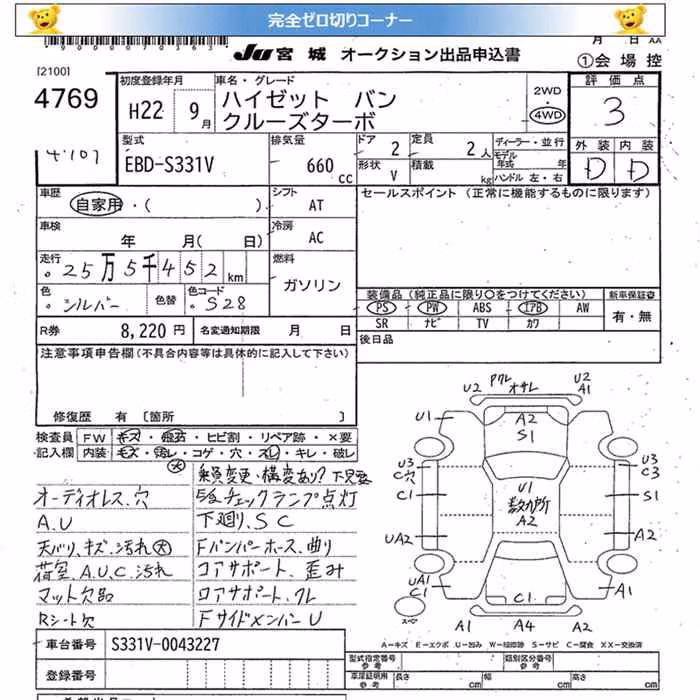 完全ゼロ切りコーナー
JU 宮城 オークション出品申込書
月 日 AA
①会場控
[2100]
4769
4107
初度登録年月
H22 9月
車名・グレード
ハイゼット バン
クルーズターボ
2WD
4WD
評価点
3
型式
EBD-S331V
排気量
660 cc
ドア 2
定員 2人
形状 V
積載 kg
ディーラー・並行
モデル年式 年
ハンドル 左・右
外装 内装
D D
車歴
自家用・( )
シフト
AT
セールスポイント (正常に機能するものに限ります)
車検
年 月( 日)
冷房
AC
走行
25万5千452km
燃料
ガソリン
色
シルバー
色替
色コード
S28
装備品(純正品に限り○をつけてください)
新車保証書
PS PW ABS エアB AW
SR ナビ TV カワ
有・無
R券 8,220円
名変通知期限 月 日
後日品
注意事項申告欄(不具合内容等は具体的に記入して下さい)
修復歴 有 [箇所 ]
検査員記入欄
FW キズ・飛石・ヒビ割・リペア跡・×要
内装 キズ・汚レ・コゲ・穴・スレ・キレ・破レ
大
乗員変更・構変あり?下見要
オーディオレス、穴
A.U
天バリ、キズ、汚れ大
荷室、A.U.C.汚れ
マット欠品
Rシート欠
チェックランプ点灯
下廻り、SC
Fバンパーホース、曲り
コアサポート、歪み
コアサポート、クレ
FサイドメンバーU
U2 アクレ オサレ U2 A1
U1
A2
S1
U3
C穴
C1
U1
数カ所
A2
U3
C3
S1
UA2
A2
UA1
C1
C1
A1
スペア
A1 A4 A2
A=キズ E=エクボ U=凹み W=補修跡 S=サビ C=腐食 XX=交換済
車台番号 S331V-0043227
登録番号
型式指定番号 参考
類別区分番号 参考
車庫証明用 参考 長さ cm 幅 cm 高さ cm